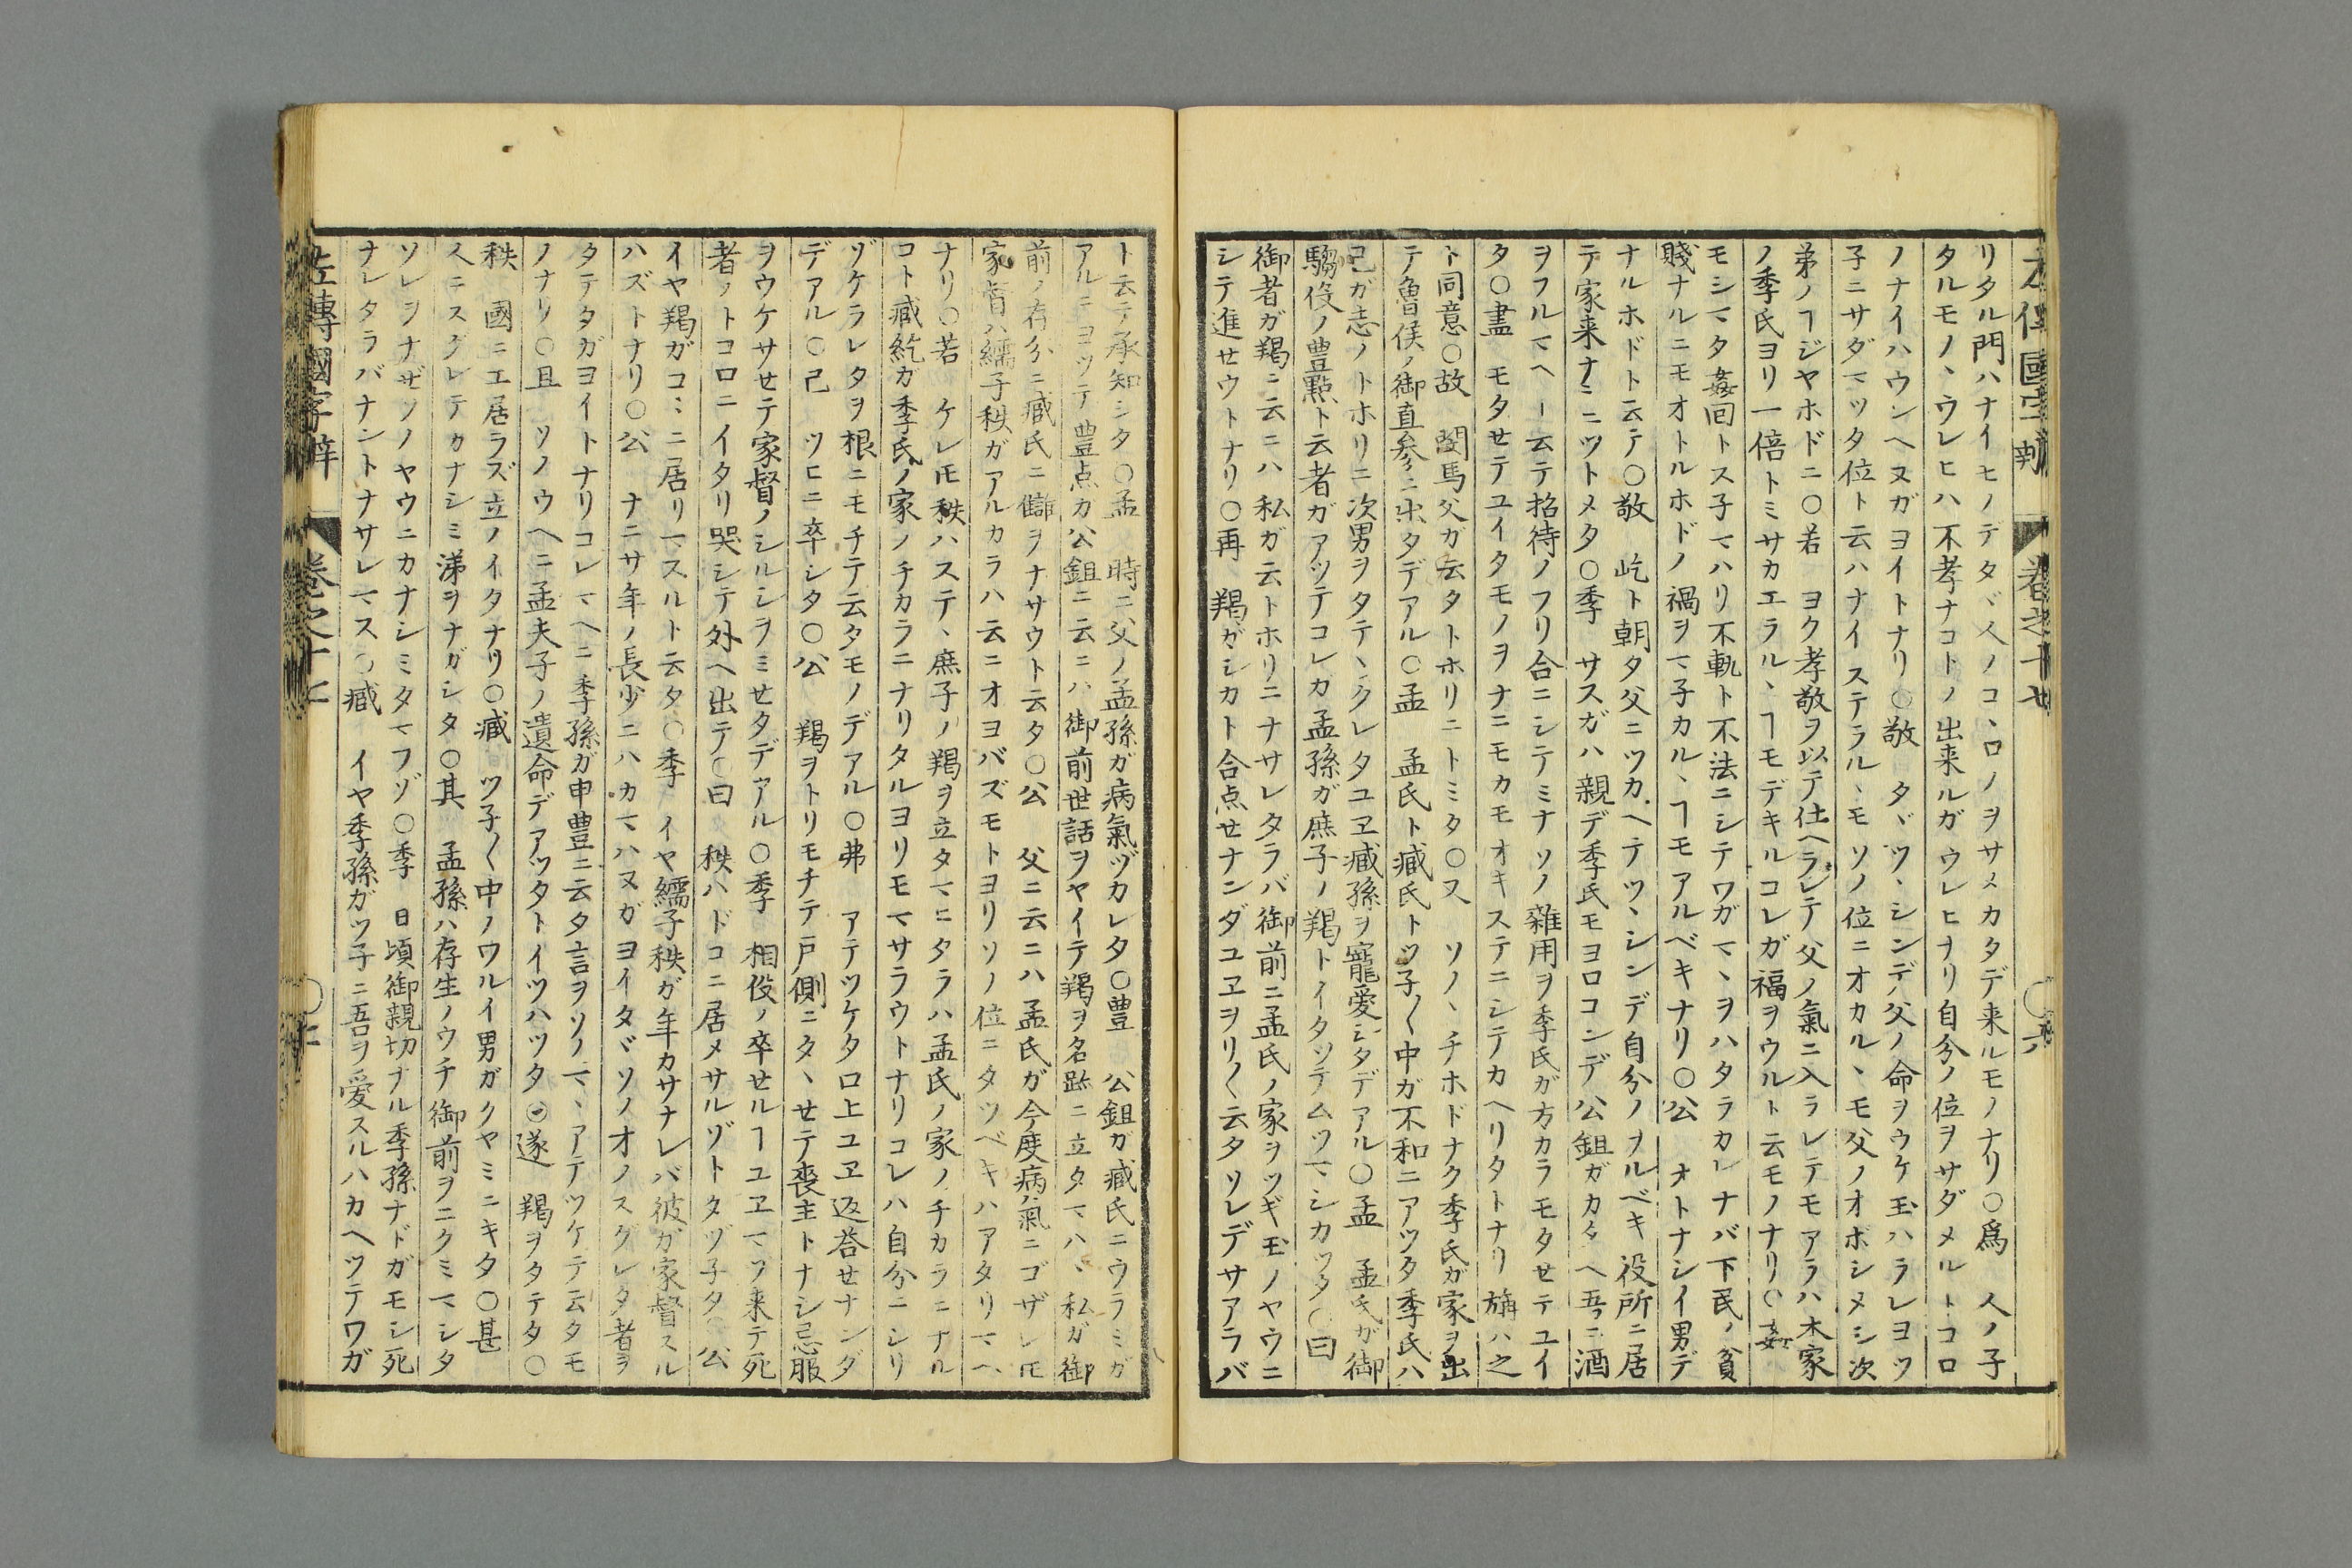 リタル門ハナイヒノデタヾ人ノコヽロノヲサメカタデ来ルモノナリ〇爲　人ノ子
タルモノヽウレヒハ不孝ナコトノ出来ルガウレヒナリ自分ノ位ヲサダメルトコロ
ノナイハウンヘヌガヨイトナリ〇敬　タヾツヽシンデ父ノ命ヲウケ玉ハラレヨツ
子ニサダマツタ位ト云ハナイステラルヽモソノ位ニオカルヽモ父ノオボシメシ次
弟ノヿジヤホドニ〇若　ヨク孝敬ヲ以テ仕ヘラレテ父ノ氣ニ入ラレテモアラハ本家
ノ季氏ヨリ一倍トミサカエラルヽヿモデキルコレガ福ヲウルト云モノナリ〇姦
モシマタ姦回トス子マハリ不軌ト不法ニシテワガマヽヲハタラカレナバ下民ノ貧
賤ナルニモオトルホドノ禍ヲマ子カルヽヿモアルベキナリ〇公　オトナシイ男デ
ナルホドト云テ〇敬　屹ト朝夕父ニツカヘテツヽシンデ自分ノヲルベキ役所ニ居
テ家来ナミニツトメタ〇季　サスガハ親デ季氏モヨロコンデ公鉏ガカタヘ吾ニ酒
ヲフルマヘト云テ招待ノフリ合ニシテミナソノ雑用ヲ季氏ガ方カラモタセテユイ
タ〇盡　モタセテユイタモノヲナニモカモオキステニシテカヘリタトナリ旃ハ之
ト同意〇故　閔馬父ガ云タトホリニトミタ〇又　ソノヽチホドナク季氏ガ家ヲ出
テ魯侯ノ御直参ニ出タデアル〇孟　孟氏ト臧氏トツ子〱中ガ不和ニアツタ季氏ハ
己ガ志ノトホリニ次男ヲタテヽクレタユヱ臧孫ヲ寵愛シタデアル〇孟　孟氏ガ御
騶役ノ豊點ト云者ガアツテコレガ孟孫ガ庶子ノ羯トイタツテムツマシカツタ〇曰
御者ガ羯ニ云ニハ私ガ云トホリニナサレタラバ御前ニ孟氏ノ家ヲツギ玉ノヤウニ
シテ進セウトナリ〇再　羯ガシカト合点セナンダユヱヲリ〱云タソレデサアラバ
ト云テ承知シタ〇孟　時ニ父ノ孟孫ガ病氣ヅカレタ〇豊　公鉏ガ臧氏ニウラミガ
アルニヨツテ豊点ガ公鉏ニ云ニハ御前世話ヲヤイテ羯ヲ名跡ニ立タマハヽ私ガ御
前ノ存分ニ臧氏ニ讎ヲナサウト云タ〇公　父ニ云ニハ孟氏ガ今度病氣ニゴザレ𪜈
家督ハ孺子秩ガアルカラハ云ニオヨバズモトヨリソノ位ニタツベキハアタリマヘ
ナリ〇若　ケレ𪜈秩ハステヽ庶子ノ羯ヲ立タマヒタラハ孟氏ノ家ノチカラニナル
コト臧紇ガ季氏ノ家ノチカラニナリタルヨリモマサラウトナリコレハ自分ニシリ
ゾケラレタヲ根ニモチテ云タモノデアル〇弗　アテツケタ口上ユヱ返答セナンダ
デアル〇己　ツヒニ卒シタ〇公　羯ヲトリモチテ戸側ニタヽセテ喪主トナシ忌服
ヲウケサセテ家督ノシルシヲミセタデアル〇季　相役ノ卒セルヿユヱマツ来テ死
者ノトコロニイタリ哭シテ外ヘ出テ〇曰　秩ハドコニ居メサルゾトタヅ子タ〇公
イヤ羯ガコヽニ居リマスルト云タ〇季　イヤ孺子秩ガ年カサナレバ彼ガ家督スル
ハズトナリ〇公　ナニサ年ノ長少ニハカマハヌガヨイタヾソノオノスグレタ者ヲ
タテタガヨイトナリコレマヘニ季孫ガ申豊ニ云タ言ヲソノマヽアテツケテ云タモ
ノナリ〇且　ソノウヘニ孟夫子ノ遺命デアツタトイツハツタ〇遂　羯ヲタテタ〇
秩　國ニエ居ラズ立ノイタナリ〇臧　ツ子〱中ノワルイ男ガクヤミニキタ〇甚
人ニスグレテカナシミ涕ヲナガシタ〇其　孟孫ハ存生ノウチ御前ヲニクミマシタ
ソレヲナゼソノヤウニカナシミタマフゾ〇季　日頃御親切ナル季孫ナドガモシ死
ナレタラバナントナサレマス〇臧　イヤ季孫ガツ子ニ吾ヲ愛スルハカヘツテワガ
左傳國字辯　巻之十七　〇七